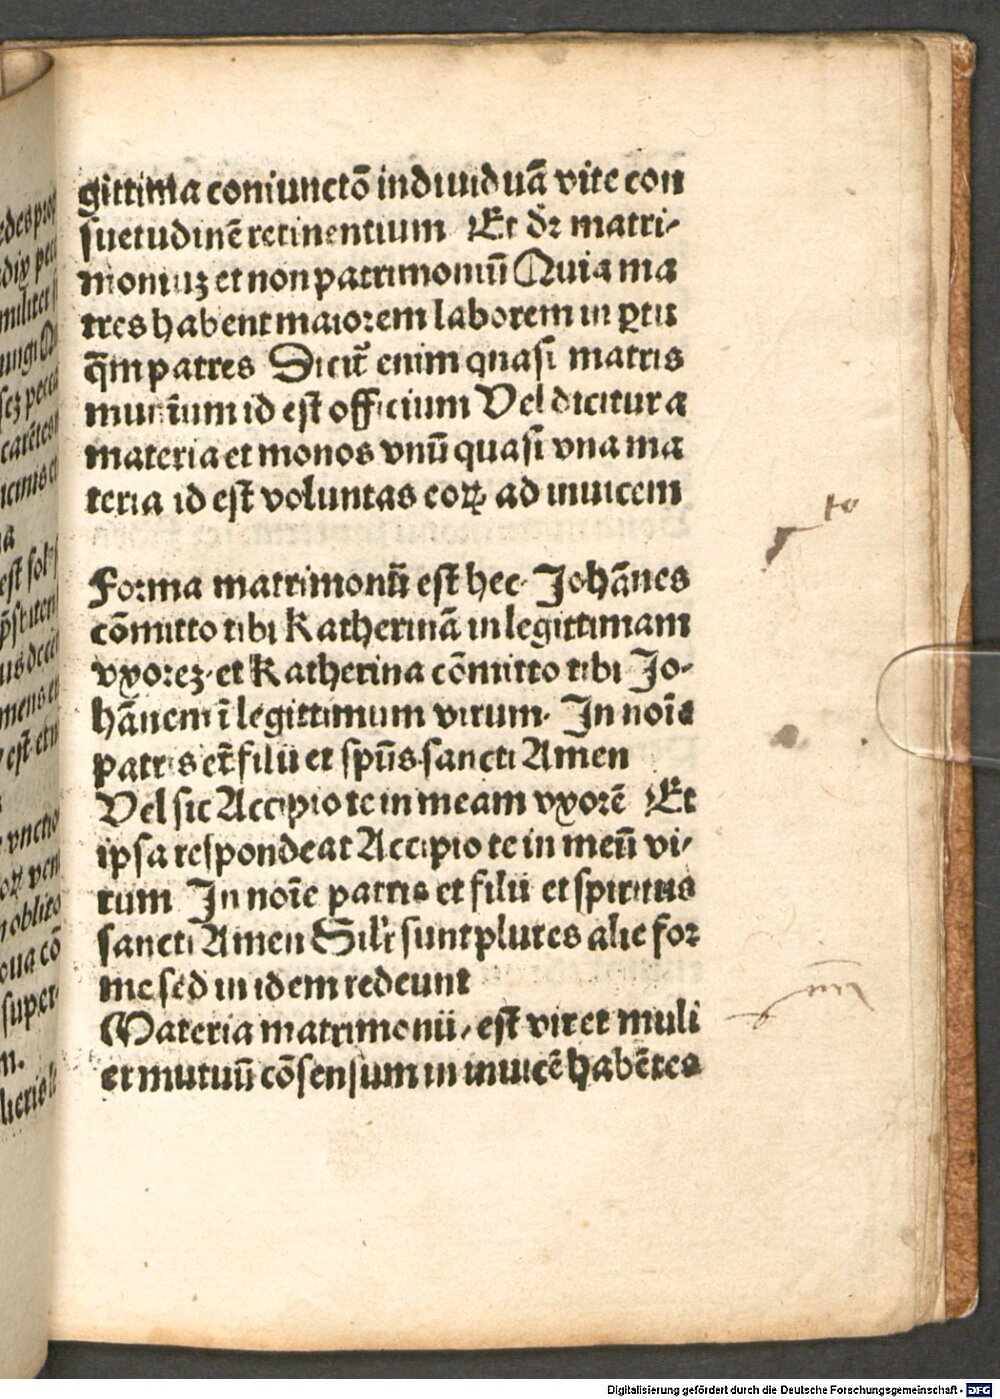 gittima coniunctõ indiuiduã vite con
suetudinẽ retinentium Et dꝛ matri-
moniuꝫ et non patrimoniũ Quia ma
tres habent maioꝛem laboꝛem in ꝑtu
q̃m patres Dicit̃ enim quasi matris
muniũm id est officium Vel dicitur a
materia et monos vnũ quasi vna ma
teria id est voluntas eoꝝ ad inuicem
Foꝛma matrimonii est hec· Johãnes
cõmitto tibi Katherinã in legittimam
vxoꝛeꝫ· et Katherina cõmitto tibi Jo-
hãnem ĩ legittimum virum· In noĩe
patris et filii et spũs sancti Amen
Vel sic Accipio te in meam vxoꝛẽ Et
ipsa respondeat Accipio te in meũ vi-
rum In noĩe patris et filii et spiritus
sancti Amen Silr̃ sunt plures alie foꝛ
me sed in idem redeunt
Materia matrimonii, est vir et muli
er mutuũ cõsensum in inuicẽ habẽtes
Digitalisierung gefördert durch die Deutsche Forschungsgemeinschaft - DFG